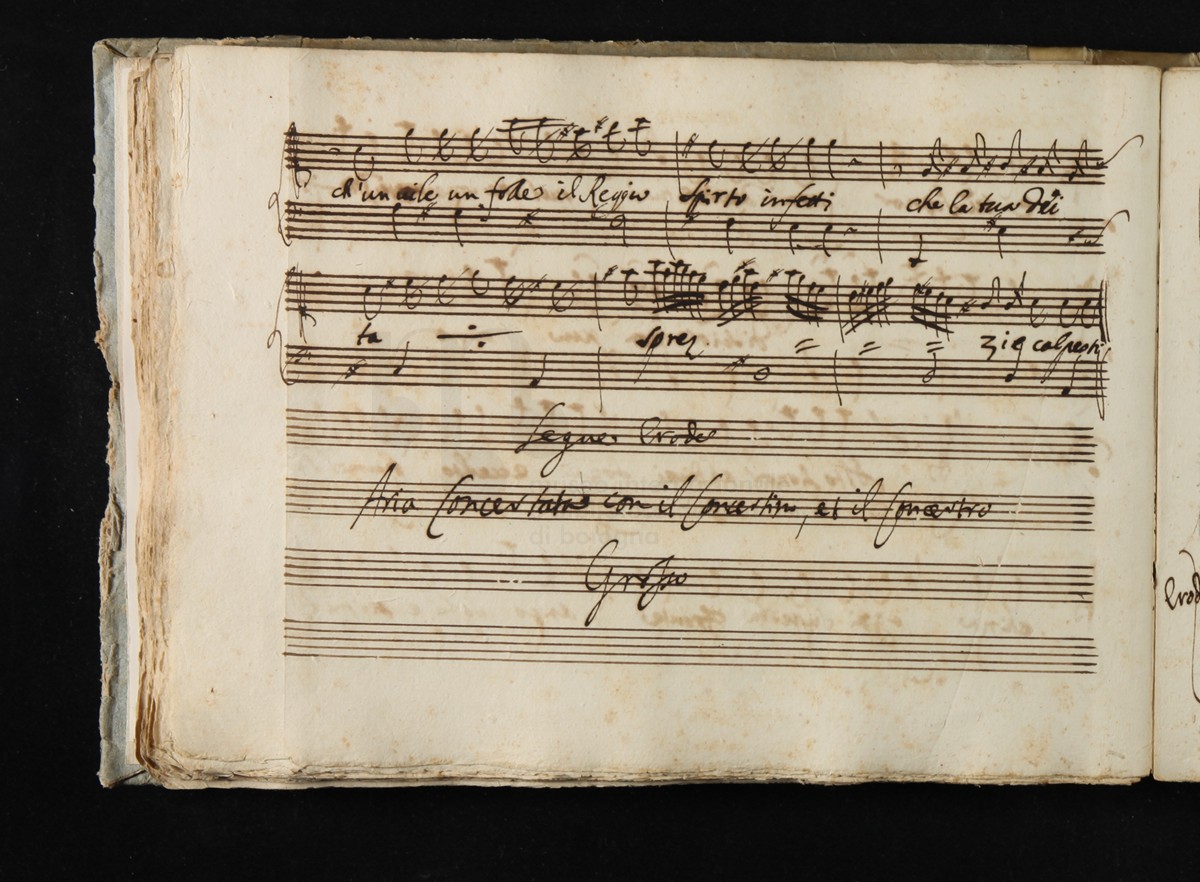 ch'un vile un folle il Reggio Spirto infesti che la tua Dei
ta sprez = = = zi e calpesti
Segue Erode
Aria Concertata con il Concertino, et il Concerto
Grosso
di bologna
Erod